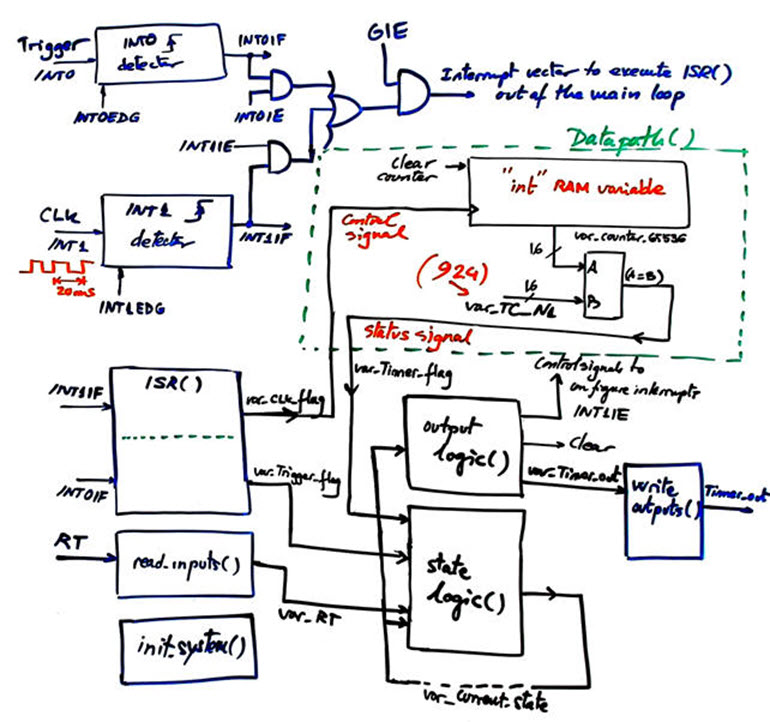 GIE
Trigger
INT0
INT0
detector
INT0IF
INT0EDG
INT0IE
Interrupt vector to execute ISR()
out of the main loop
INT1IE
Datapath()
CLK
INT1
INT1
detector
INT1IF
20ms
INT1EDG
clear
counter
"int" RAM variable
control
signal
var_counter_65536
16
A
B
(A=B)
(924)
16
var_TC_N1
status signal
INT1IF
ISR()
var_CLK_flag
var_Timer_flag
Control signals to
configure interrupts
INT1IE
output
logic()
Clear
var_Timer_out
write
outputs()
Timer_out
INT0IF
var_Trigger_flag
RT
read_inputs()
var_RT
state
logic()
init_system()
var_current_state